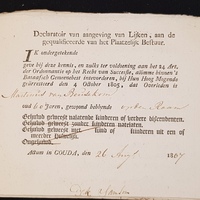 Declaratoir van aangeving van Lijken, aan de
gequalificeerde van het Plaatselijk Bestuur.
IK ondergetekende
geve bij deze kennis, en zulks ter voldoening aan het 24 Art.
der Ordonnantie op het Recht van Successie, alomme binnen 's
Bataafsch Gemeenebest inteverdoren, bij Hun Hoog Mogende
gearresteerd den 4 October 1805, dat Overleden is
Martinus van
oud 60 Jaren, gewoond hebbende op den Raam
Gehuwd geweest nalatende kinderen of verdere bloedverwanten.
Gehuwd geweest zonder kinderen natelaten.
Gehuwd geweest met kind of kinderen uit een of
meerder Huwelijk.
Ongehuwd.
Actum in GOUDA, den 26 Aug 1807